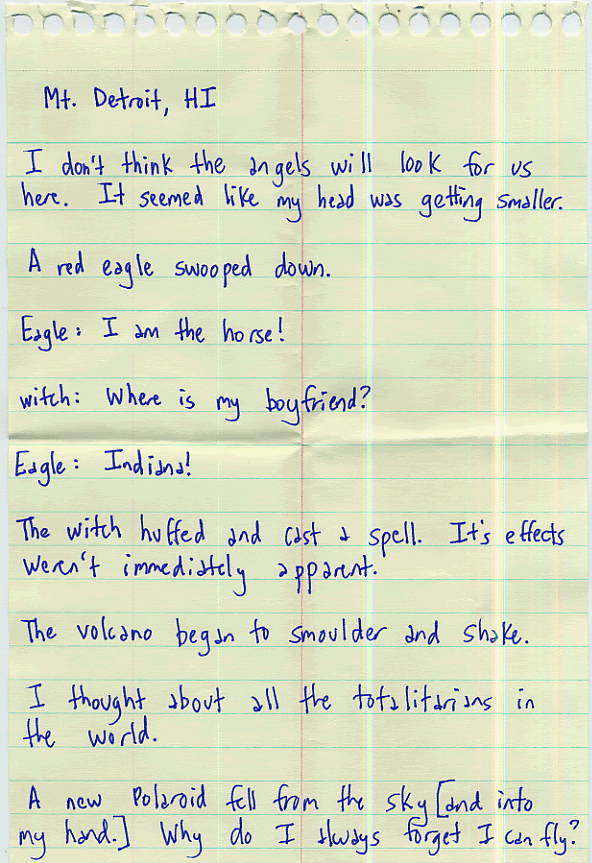 Mt. Detroit, HI
I don't think the angels will look for us
here. It seemed like my head was getting smaller.
A red eagle swooped down.
Eagle: I am the horse!
witch: Where is my boyfriend?
Eagle: Indiana!
The witch huffed and cast a spell. It's effects
weren't immediately apparent.
The volcano began to smoulder and shake.
I thought about all the totalitarians in
the world.
A new Polaroid fell from the sky [and into
my hand.] Why do I always forget I can fly?